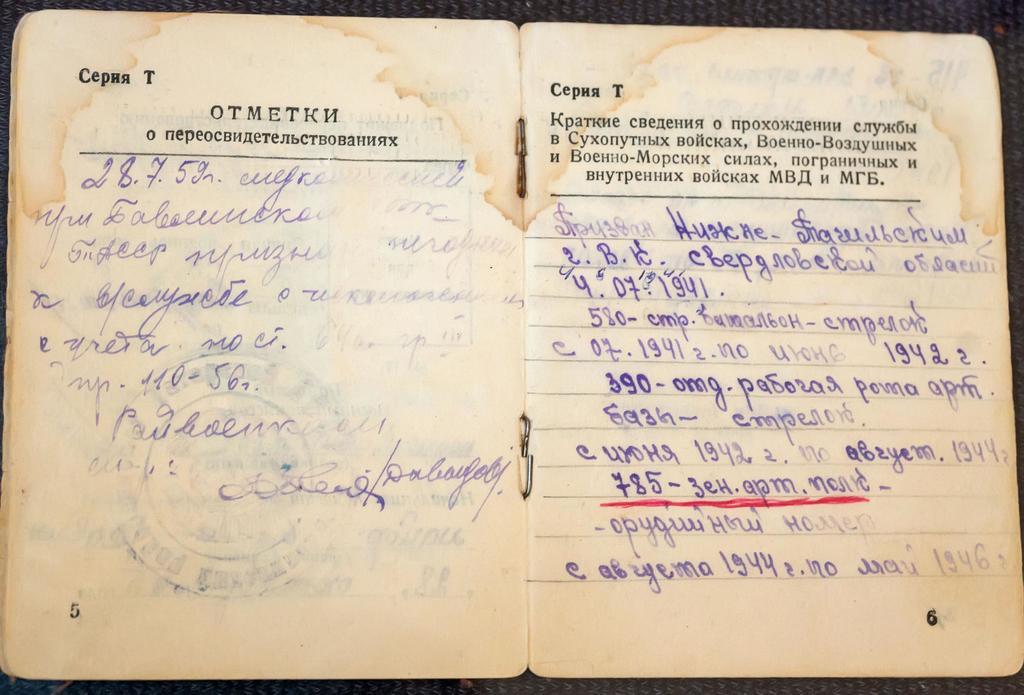 Серия Т
ОТМЕТКИ
о переосвидетельствованиях
28.7.59г.
при Бавлинском
ТАССР негодным
к в/службе с исключением
с учета. пост. гр III
пр. 110-56г.
Райвоенком
/Давыдов/
5
Серия Т
Краткие сведения о прохождении службы
в Сухопутных войсках, Военно-Воздушных
и Военно-Морских силах, пограничных и
внутренних войсках МВД и МГБ.
Призван Нижне-Тагильским
г. В.К. свердловской области
07. 1941.
580-стр. батальон-стрелок
с 07.1941 г. по июнь 1942 г.
390-отд. рабочая рота арт.
базы- стрелок.
с июня 1942 г. по август. 1944 г
785-зен. арт. полк-
-орудийный номер
с августа 1944 г. по май 1946 г
6